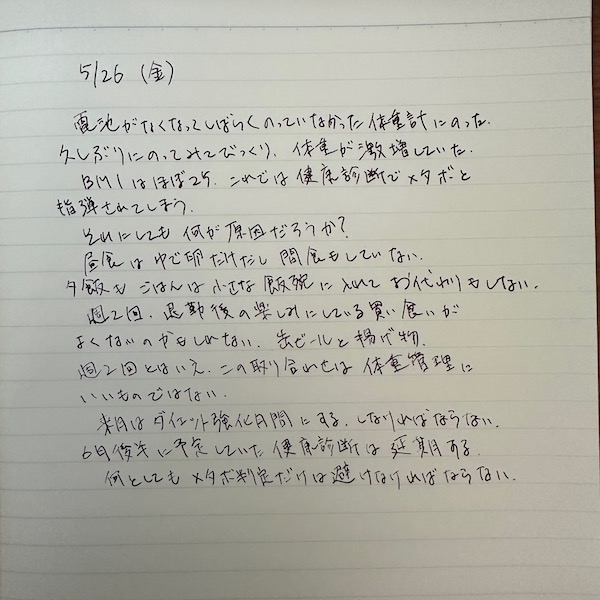 5/26 (金)
電池がなくなってしばらくのっていなかった体重計にのった.
久しぶりにのってみてびっくり. 体重が激増していた.
BMIはほぼ25. これでは健康診断でメタボと
指弾されてしまう.
それにしても何が原因だろうか?
昼食はゆで卵だけだし間食もしていない.
夕飯もごはんは小さな飯碗に入れてお代わりもしない.
週2回、退勤後の楽しみにしている買い食いが
よくないのかもしれない. 缶ビールと揚げ物.
週2回とはいえ、この取り合わせは体重管理に
いいものではない.
来月はダイエット強化月間にする. しなければならない.
6月後半に予定していた健康診断は延期する.
何としてもメタボ判定だけは避けなければならない.